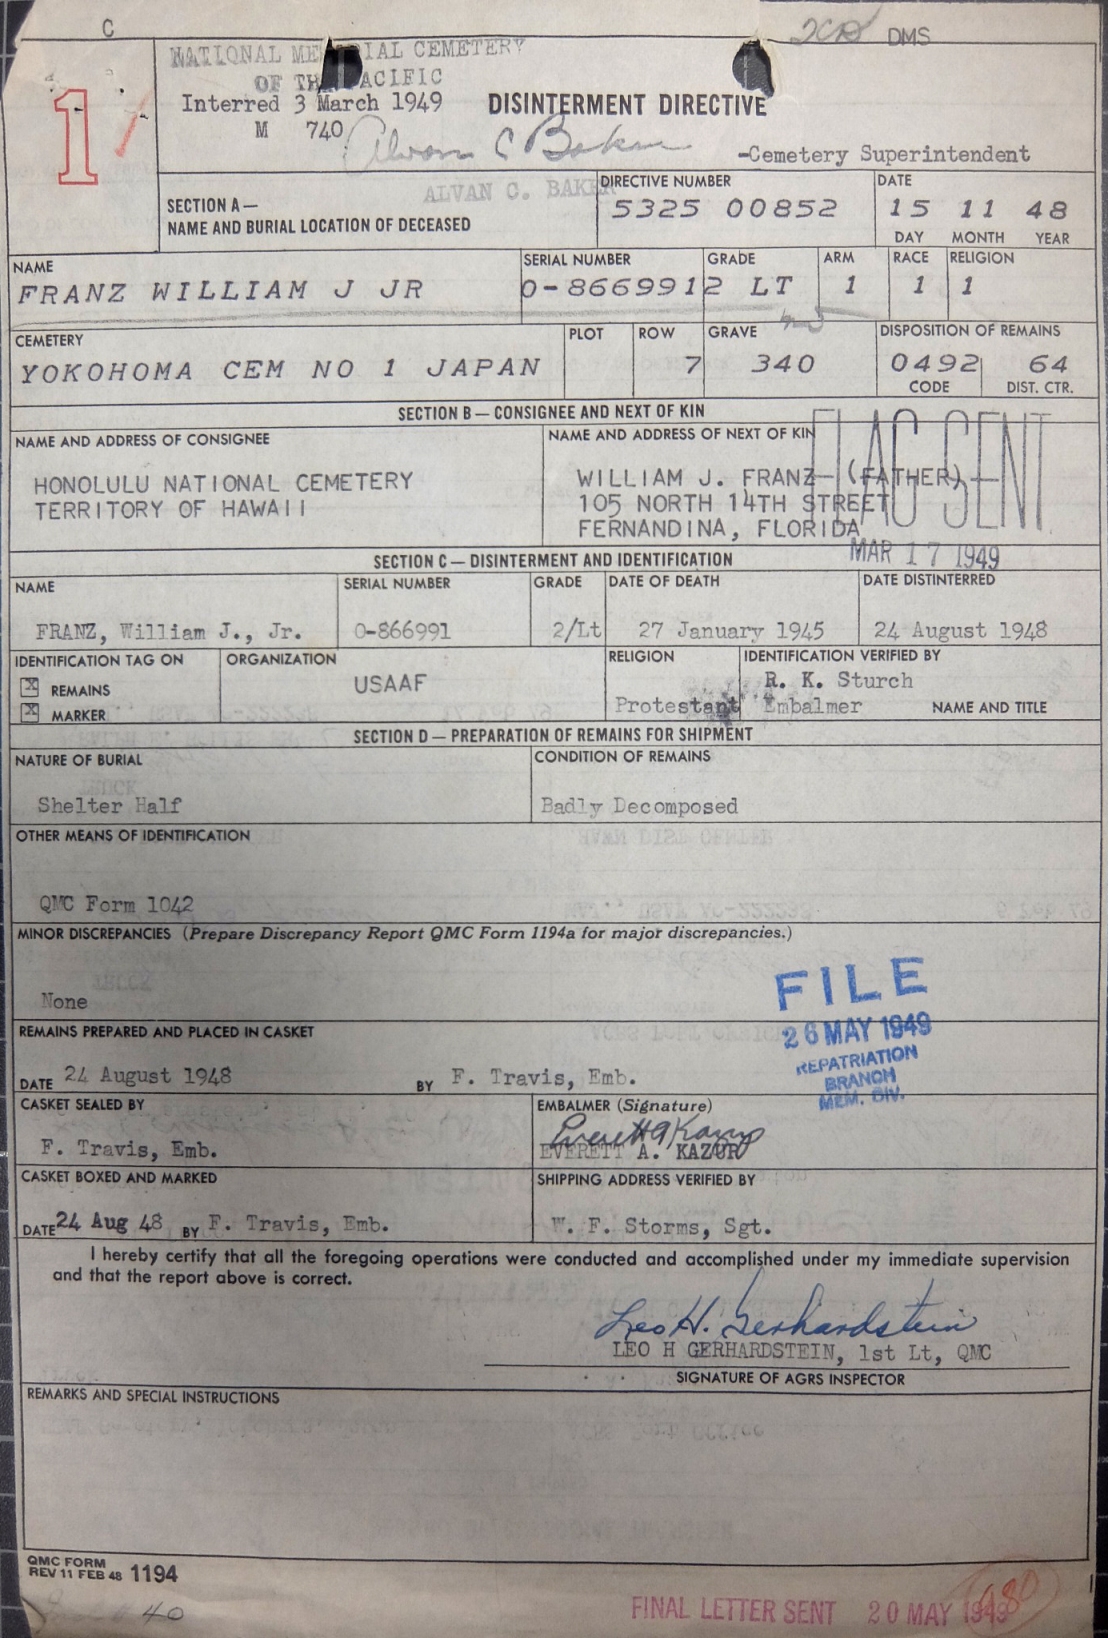 C
DMS
1
NATIONAL MEMORIAL CEMETERY
OF THE PACIFIC
Interred 3 March 1949
M 740
DISINTERMENT DIRECTIVE
Alvan C Baker
-Cemetery Superintendent
ALVAN C. BAKER
SECTION A—
NAME AND BURIAL LOCATION OF DECEASED
DIRECTIVE NUMBER
5325 00852
DATE
15 11 48
DAY MONTH YEAR
NAME
FRANZ WILLIAM J JR
SERIAL NUMBER
O-866991
GRADE
2 LT
ARM
1
RACE
1
RELIGION
1
CEMETERY
YOKOHOMA CEM NO 1 JAPAN
PLOT
ROW
7
GRAVE
340
DISPOSITION OF REMAINS
0492 64
CODE DIST. CTR.
SECTION B — CONSIGNEE AND NEXT OF KIN
NAME AND ADDRESS OF CONSIGNEE
HONOLULU NATIONAL CEMETERY
TERRITORY OF HAWAII
NAME AND ADDRESS OF NEXT OF KIN
WILLIAM J. FRANZ (FATHER)
105 NORTH 14TH STREET
FERNANDINA, FLORIDA
FLAG SENT
MAR 17 1949
SECTION C — DISINTERMENT AND IDENTIFICATION
NAME
FRANZ, William J., Jr.
SERIAL NUMBER
O-866991
GRADE
2/Lt
DATE OF DEATH
27 January 1945
DATE DISTINTERRED
24 August 1948
IDENTIFICATION TAG ON
X REMAINS
X MARKER
ORGANIZATION
USAAF
RELIGION
Protestant
IDENTIFICATION VERIFIED BY
R. K. Sturch
Embalmer NAME AND TITLE
SECTION D — PREPARATION OF REMAINS FOR SHIPMENT
NATURE OF BURIAL
Shelter Half
CONDITION OF REMAINS
Badly Decomposed
OTHER MEANS OF IDENTIFICATION
QMC Form 1042
MINOR DISCREPANCIES (Prepare Discrepancy Report QMC Form 1194a for major discrepancies.)
None
FILE
26 MAY 1949
REPATRIATION
BRANCH
MEM. DIV.
REMAINS PREPARED AND PLACED IN CASKET
DATE 24 August 1948 BY F. Travis, Emb.
CASKET SEALED BY
F. Travis, Emb.
EMBALMER (Signature)
Everett A Kazur
EVERETT A. KAZUR
CASKET BOXED AND MARKED
DATE 24 Aug 48 BY F. Travis, Emb.
SHIPPING ADDRESS VERIFIED BY
W. F. Storms, Sgt.
I hereby certify that all the foregoing operations were conducted and accomplished under my immediate supervision
and that the report above is correct.
Leo H. Gerhardstein
LEO H GERHARDSTEIN, 1st Lt, QMC
SIGNATURE OF AGRS INSPECTOR
REMARKS AND SPECIAL INSTRUCTIONS
QMC FORM
REV 11 FEB 48 1194
40
FINAL LETTER SENT 20 MAY 1949